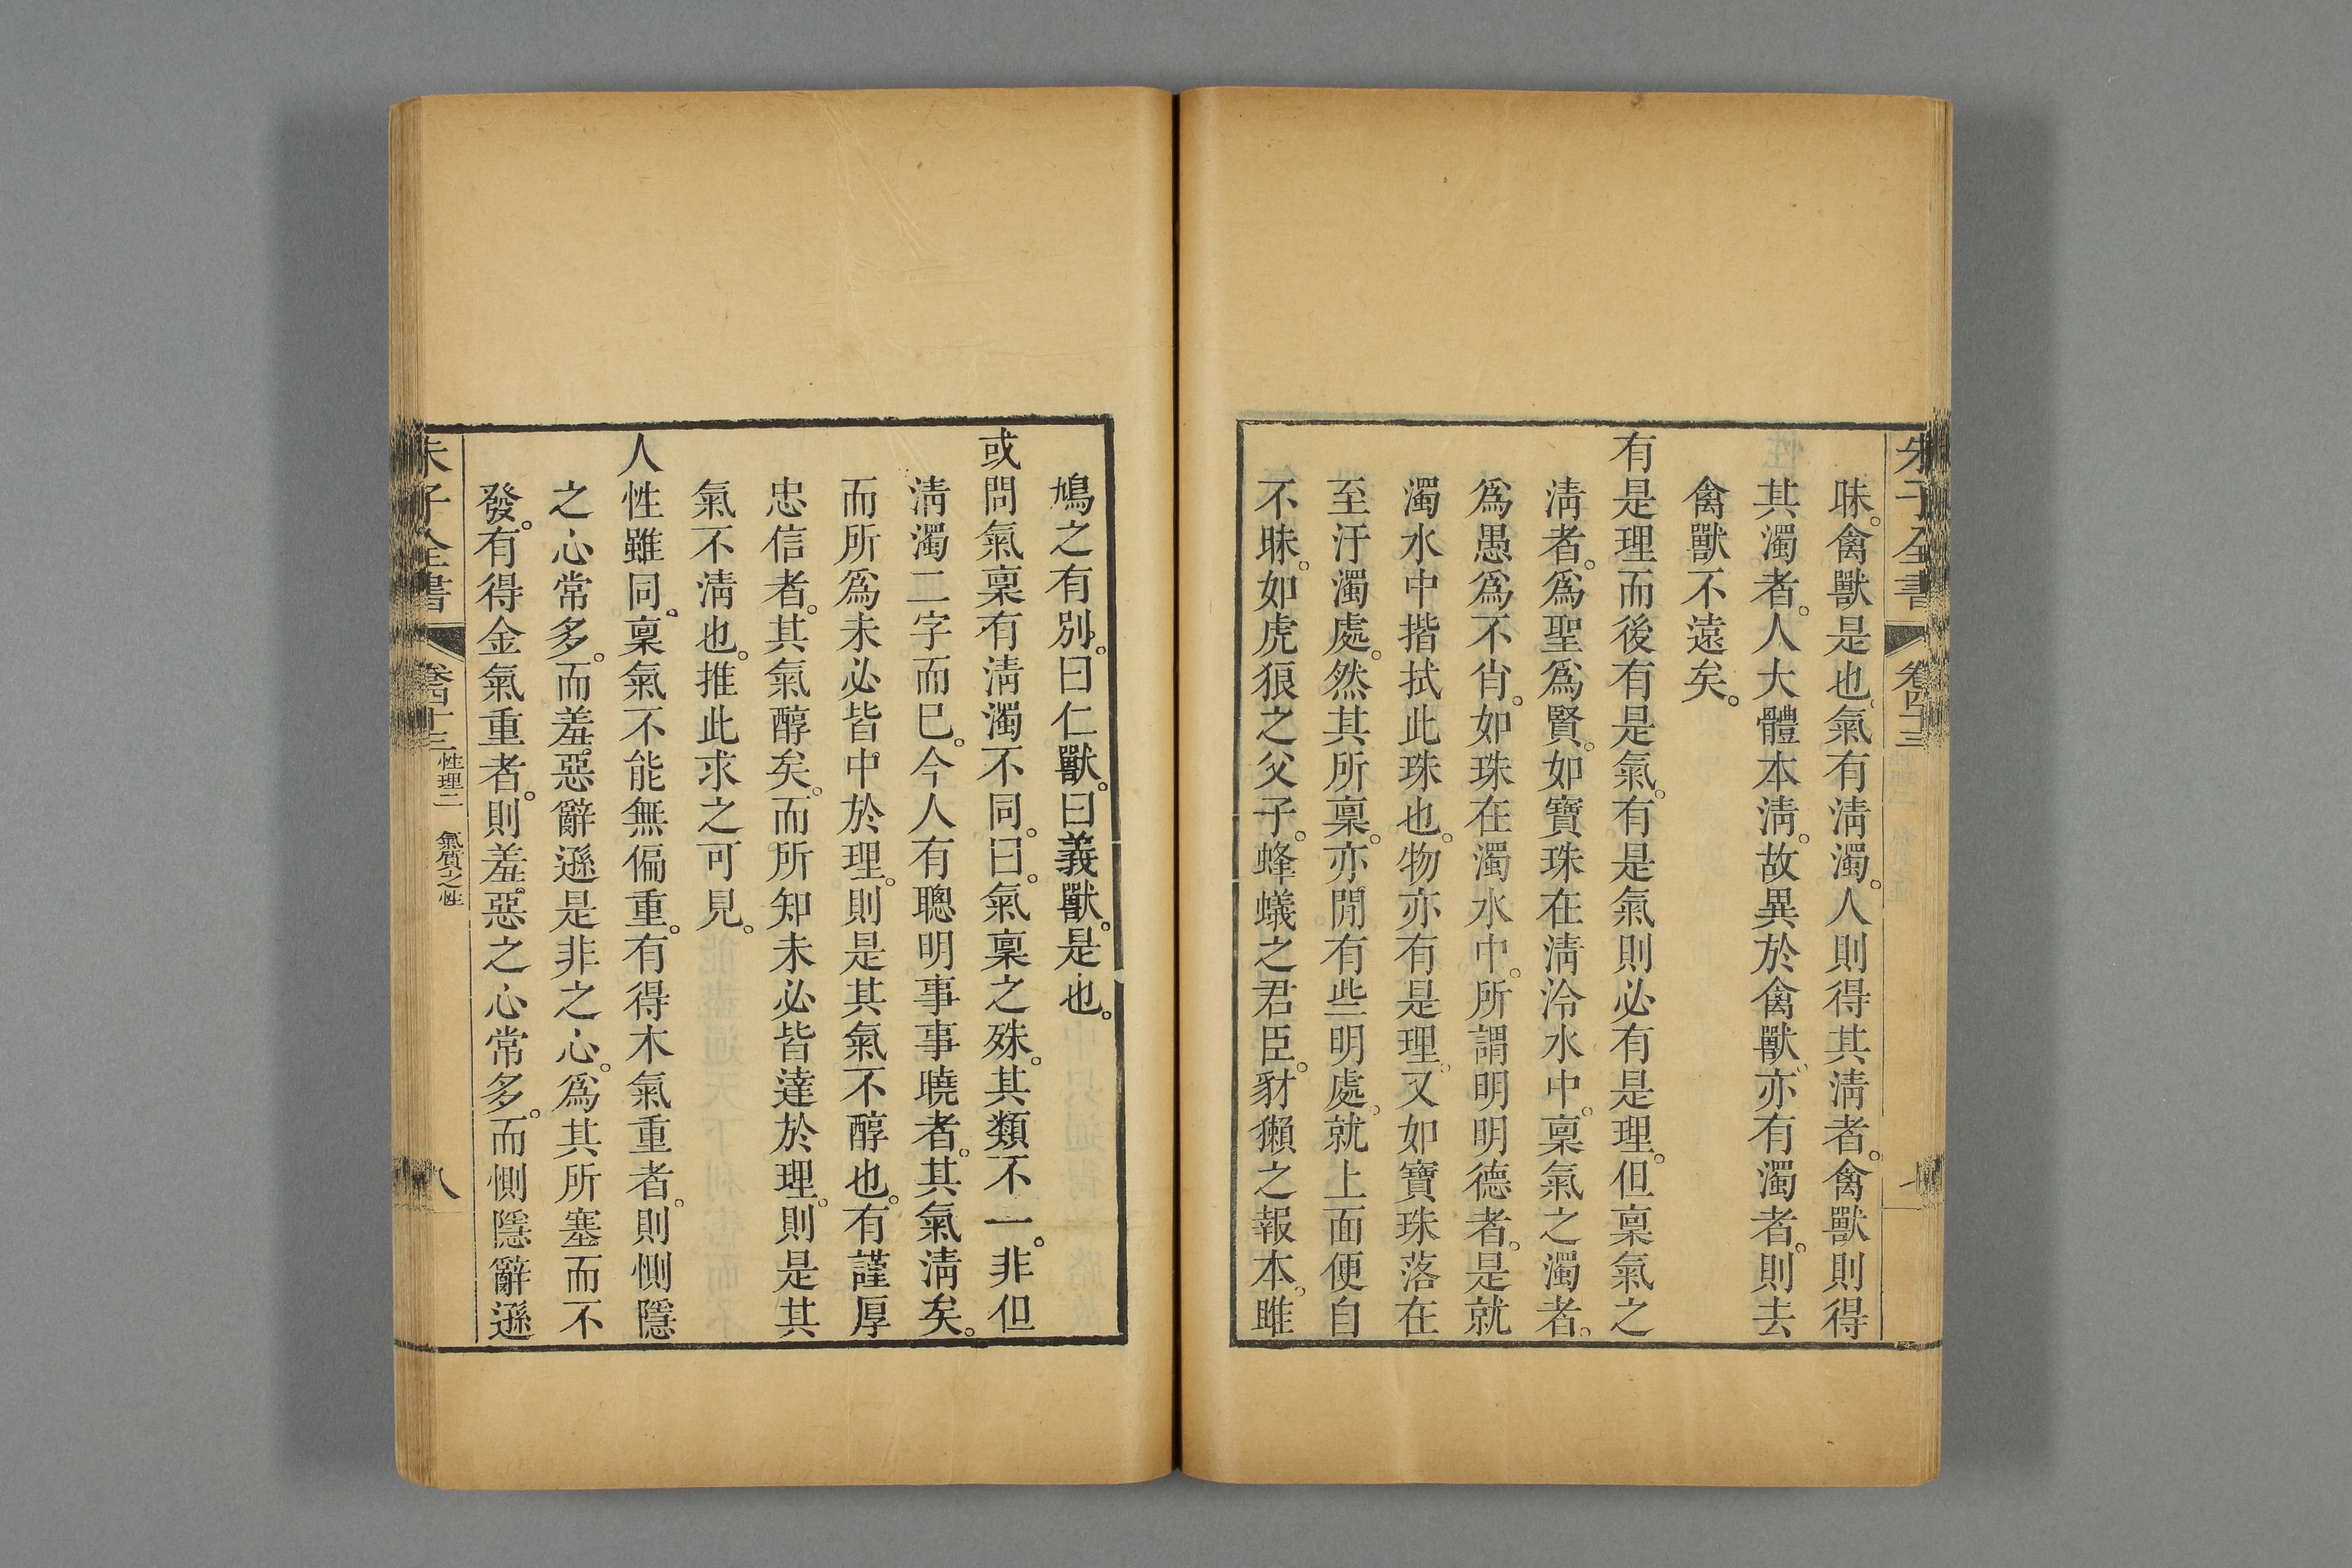 朱子全書 卷四十三 七
昧。禽獸是也。氣有淸濁。人則得其淸者。禽獸則得
其濁者。人大體本淸。故異於禽獸。亦有濁者。則去
禽獸不遠矣。
有是理而後有是氣。有是氣則必有是理。但稟氣之
淸者。爲聖爲賢。如寶珠在淸泠水中。稟氣之濁者。
爲愚爲不肖。如珠在濁水中。所謂明明德者。是就
濁水中揩拭此珠也。物亦有是理。又如寶珠落在
至汙濁處。然其所稟。亦閒有些明處。就上面便自
不昧。如虎狼之父子。蜂蟻之君臣。豺獺之報本。雎
鳩之有別。曰仁獸。曰義獸。是也。
或問氣稟有淸濁不同。曰。氣稟之殊。其類不一。非但
淸濁二字而已。今人有聰明事事曉者。其氣淸矣。
而所爲未必皆中於理。則是其氣不醇也。有謹厚
忠信者。其氣醇矣。而所知未必皆達於理。則是其
氣不淸也。推此求之可見。
人性雖同。稟氣不能無偏重。有得木氣重者。則惻隱
之心常多。而羞惡辭遜是非之心。爲其所塞而不
發。有得金氣重者。則羞惡之心常多。而惻隱辭遜
朱子全書 卷四十三 性理二 氣質之性 八